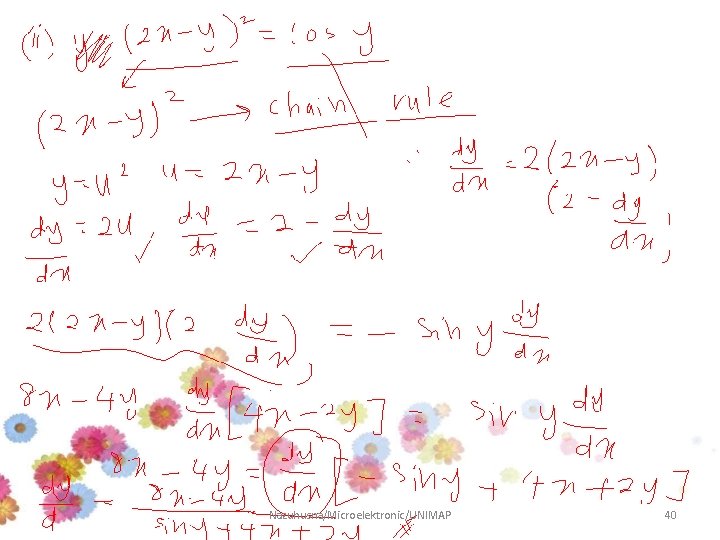 (ii) y (2x-y)² = cos y
(2x-y)² → chain rule
y=u² u= 2x-y
∴ dy/dx = 2(2x-y)
(2 - dy/dx)
dy/dx = 2u, du/dx = 2 - dy/dx
2(2x-y)(2 dy/dx) = - sin y dy/dx
8x-4y dy/dx [4x-2y] = sin y dy/dx
8x-4y = dy/dx [-sin y + 4x+2y]
dy/d = 8x-4y / sin y + 4x + 2y
Nazuhusna/Microelectronic/UNIMAP
40